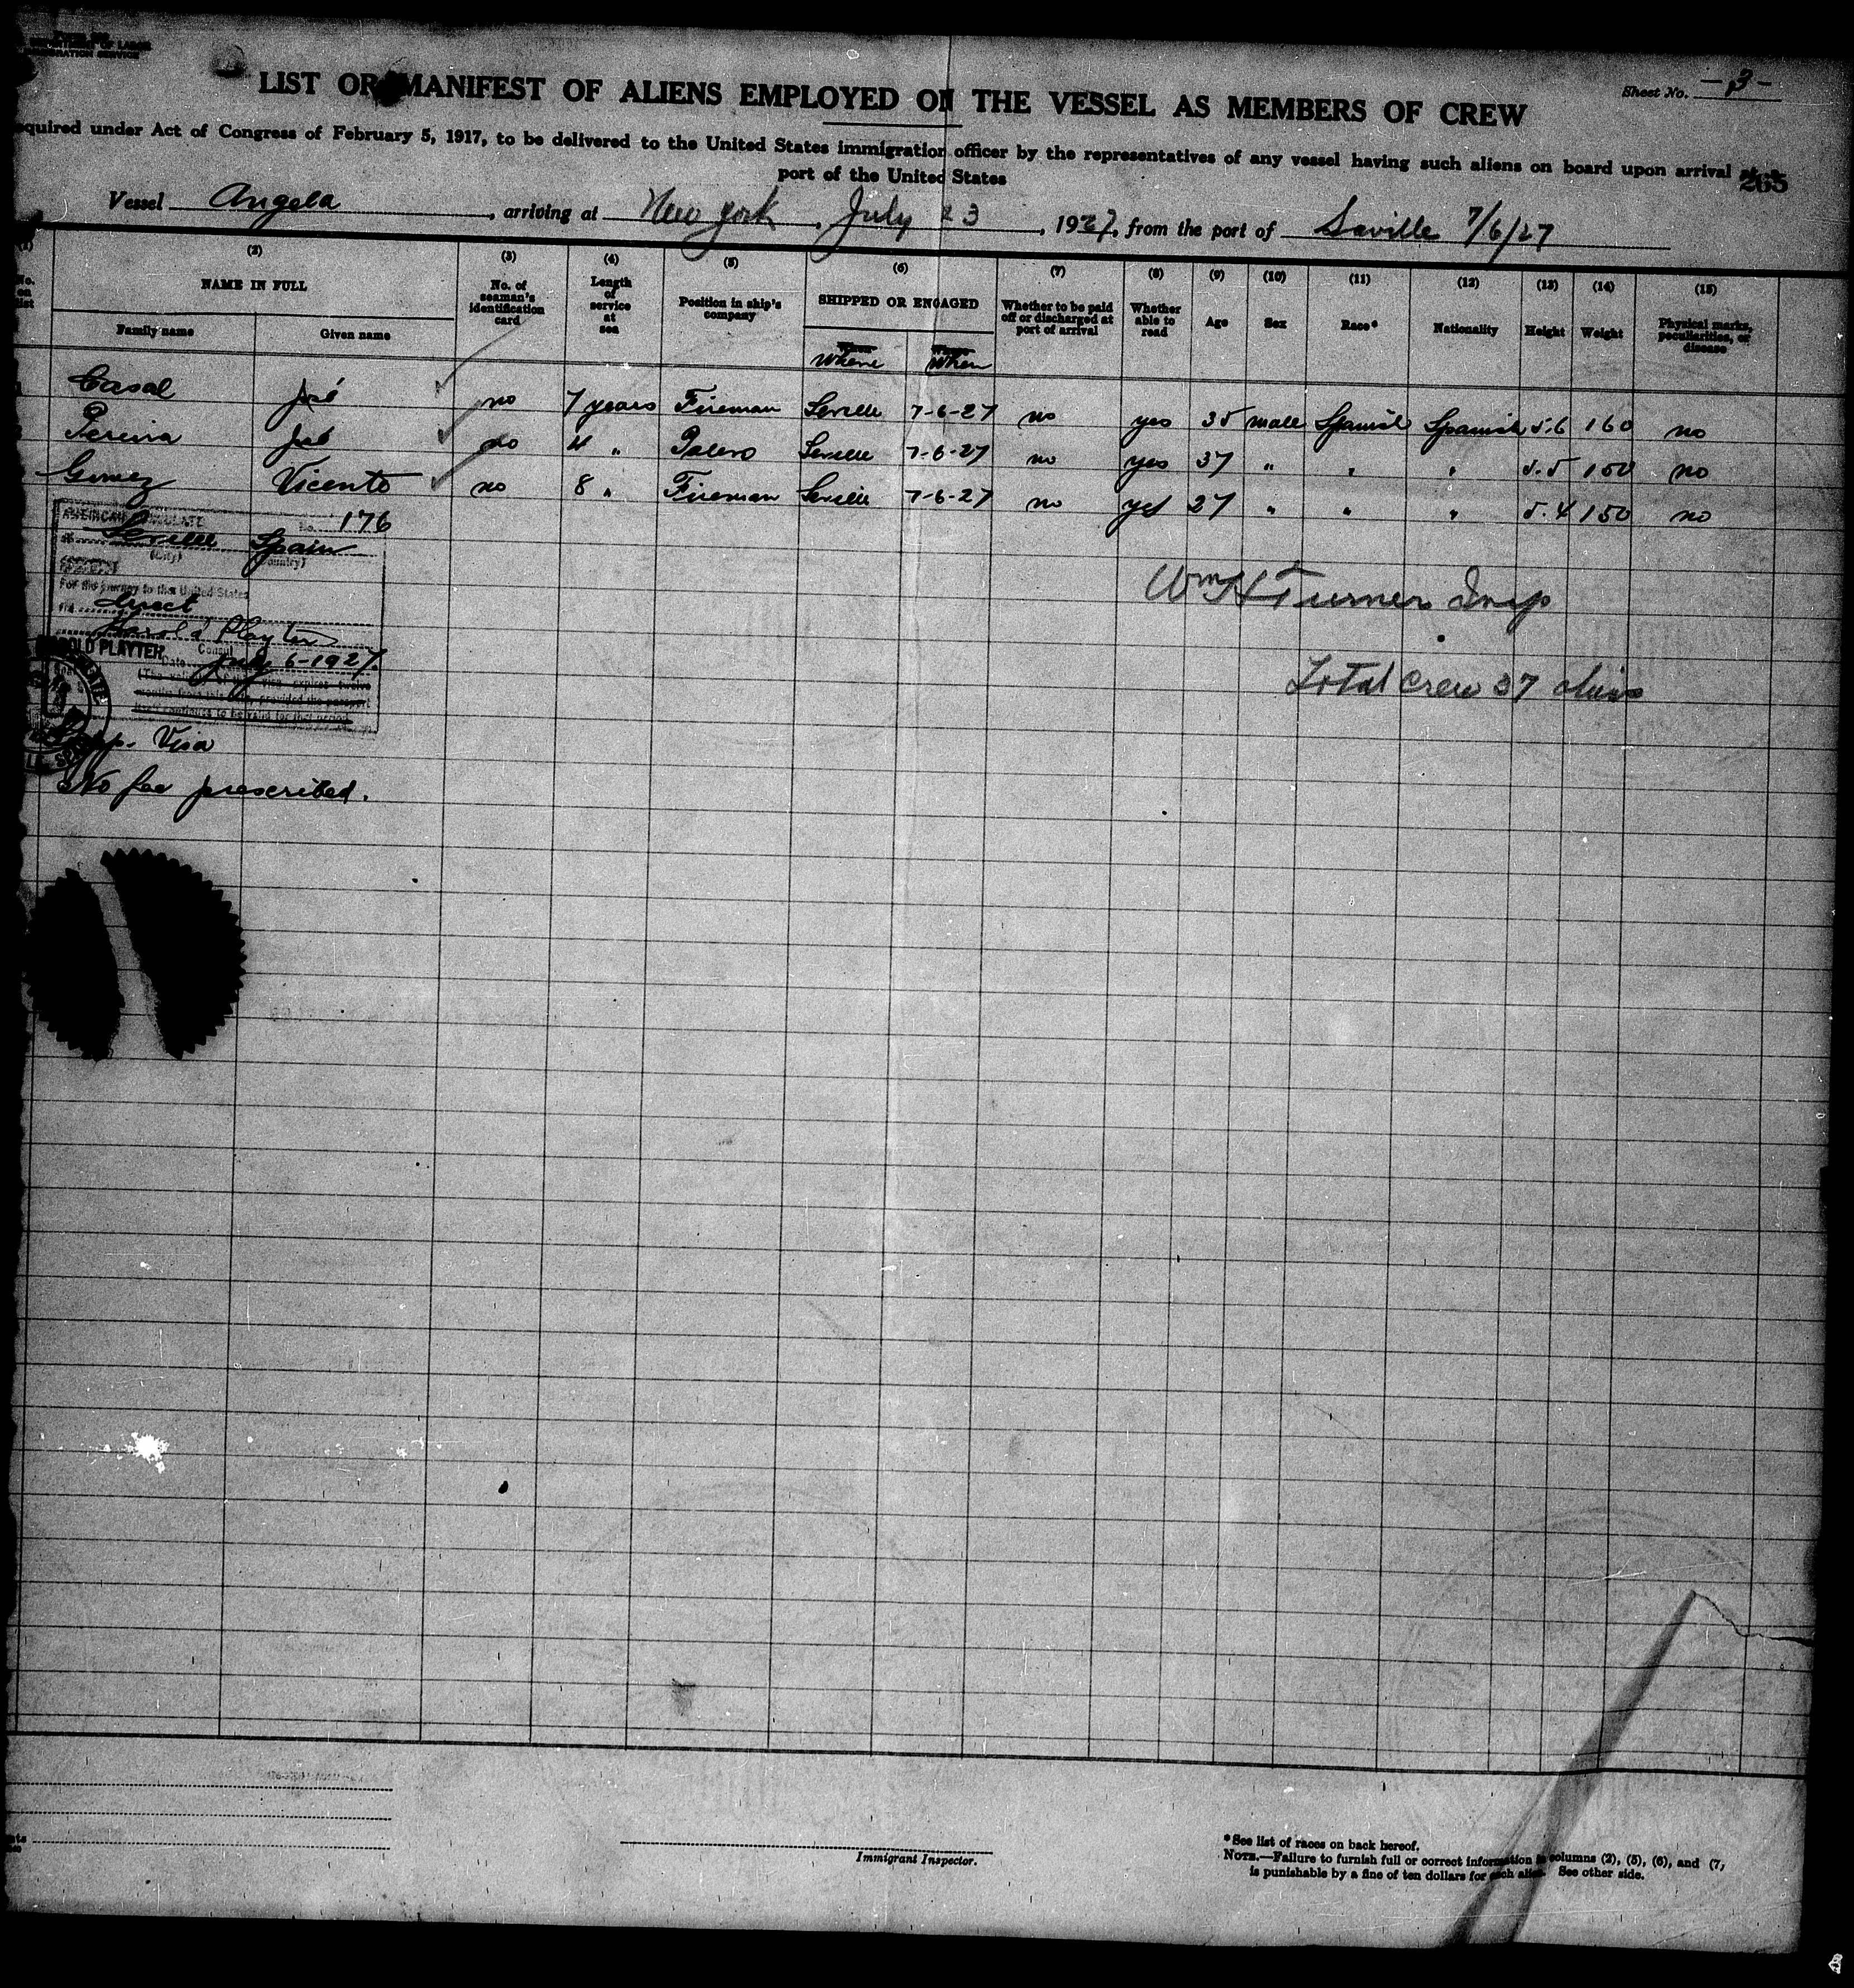 DEPARTMENT OF LABOR
IMMIGRATION SERVICE
Sheet No. -3-
LIST OR MANIFEST OF ALIENS EMPLOYED ON THE VESSEL AS MEMBERS OF CREW
equired under Act of Congress of February 5, 1917, to be delivered to the United States immigration officer by the representatives of any vessel having such aliens on board upon arrival
port of the United States
265
Vessel Angela, arriving at New York, July 23, 1927, from the port of Saville 7/6/27
(1) (2) (3) (4) (5) (6) (7) (8) (9) (10) (11) (12) (13) (14) (15)
No. on list NAME IN FULL No. of seaman's identification card Length of service at sea Position in ship's company SHIPPED OR ENGAGED Whether to be paid off or discharged at port of arrival Whether able to read Age Sex Race* Nationality Height Weight Physical marks, peculiarities, or disease
Family name Given name Where When
Casal José no 7 years Fireman Seville 7-6-27 no yes 35 male Spanish Spanish 5.6 160 no
Pereira José no 4 " Palero Seville 7-6-27 no yes 37 " " " 5.5 150 no
Gomez Vicente no 8 " Fireman Seville 7-6-27 no yes 27 " " " 5.4 150 no
AMERICAN CONSULATE No. 176
at Seville Spain
(City) (Country)
For the journey to the United States
via direct
Harold Playter
HAROLD PLAYTER Consul
Date July 6-1927.
Wm H Turner Insp
Total crew 37 aliens
Visa
No fee prescribed.
Immigrant Inspector.
*See list of races on back hereof.
NOTE.—Failure to furnish full or correct information in columns (2), (5), (6), and (7,
is punishable by a fine of ten dollars for each alien. See other side.